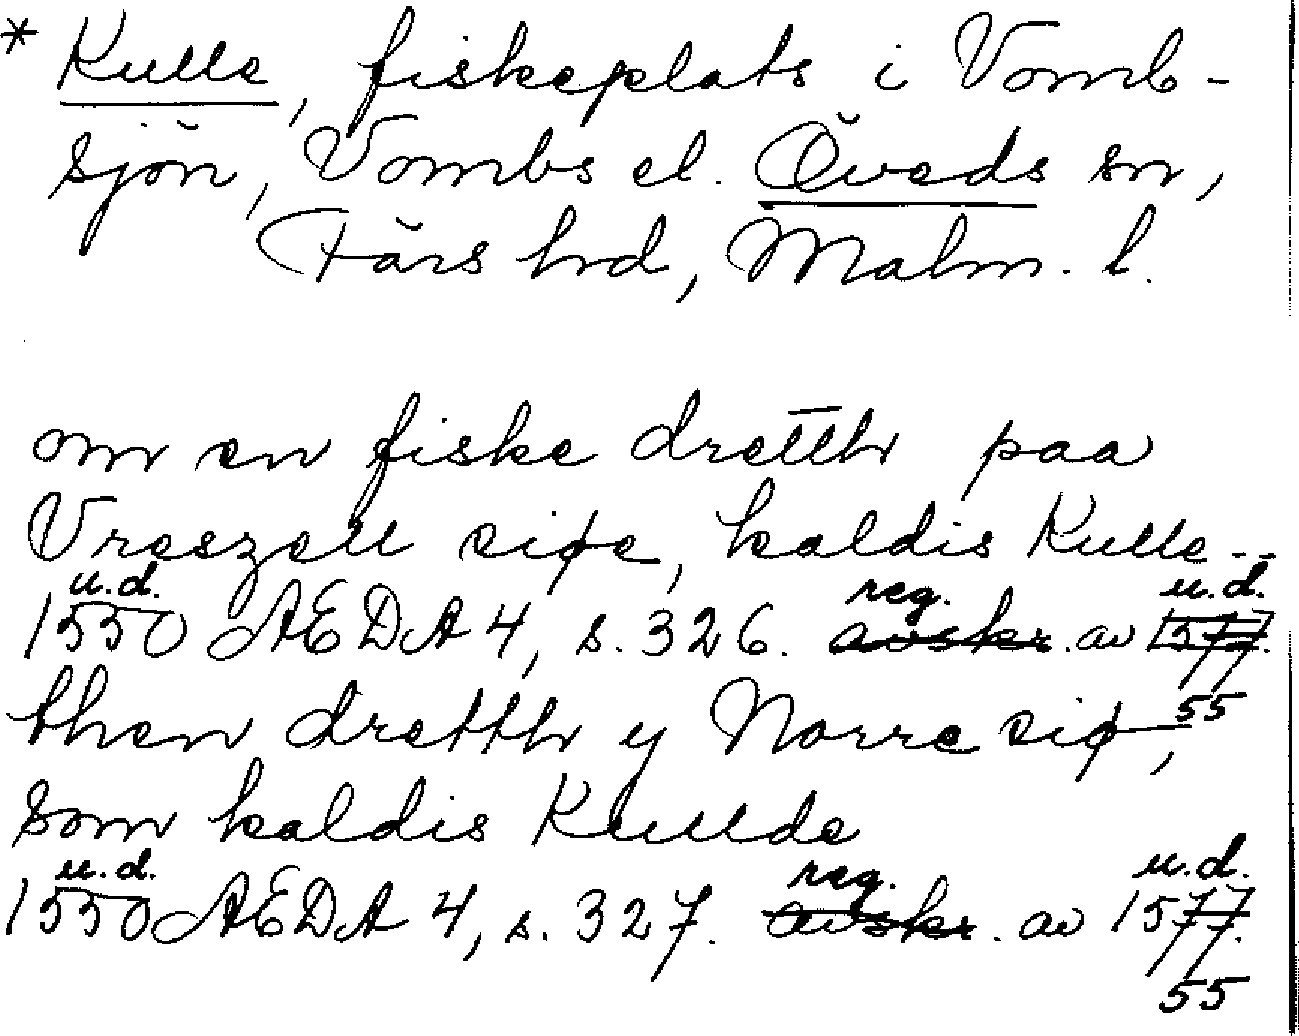 * Kulle, fiskeplats i Vomb-
sjön, Vombs el. Öveds sn,
Färs hd, Malm. l.
om en fiske dretth paa
Vreszell siøe, kaldis Kulle --
u.d. reg. u.d.
1550 AEDA 4, s. 326. avskr. av 1577.
55
then dretth y Norre siø,
som kaldis Kullde
u.d. reg. u.d.
1550 AEDA 4, s. 327. avskr. av 1577.
55